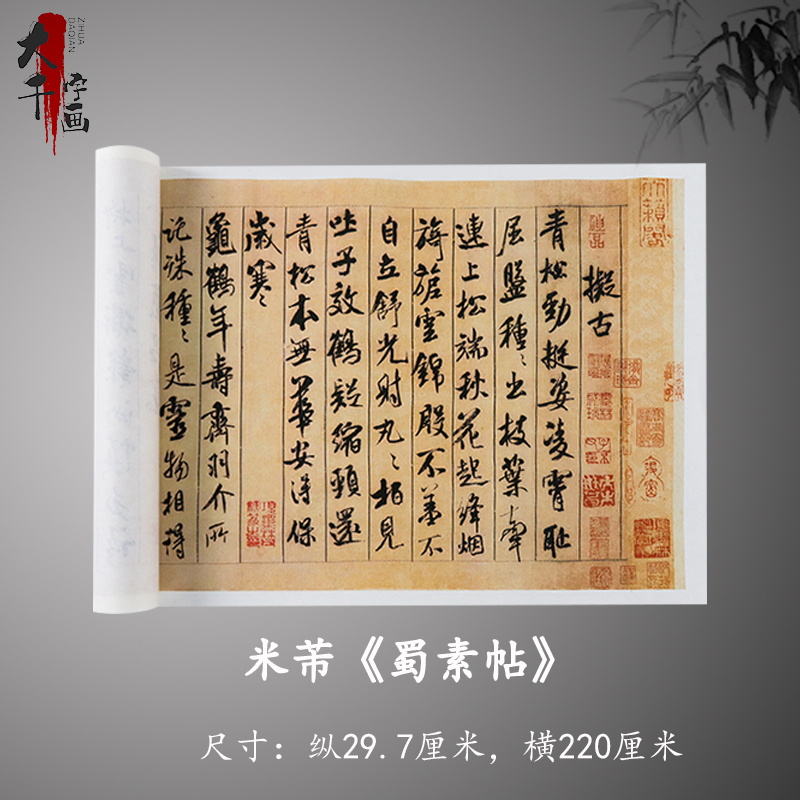 大千
字画
ZIHUA
DAQIAN
擬古
青松勁挺姿凌霄耻
屈盤種〻出枝葉牽
連上松端秋花起絳烟
旖旎雲錦殷不羞不
自立舒光射丸〻柏見
吐子效鶴疑縮頸還
青松本無華安得保
歲寒
龜鶴年壽齊羽介所
託殊種〻是靈物相得
米芾《蜀素帖》
尺寸：纵29.7厘米，横220厘米